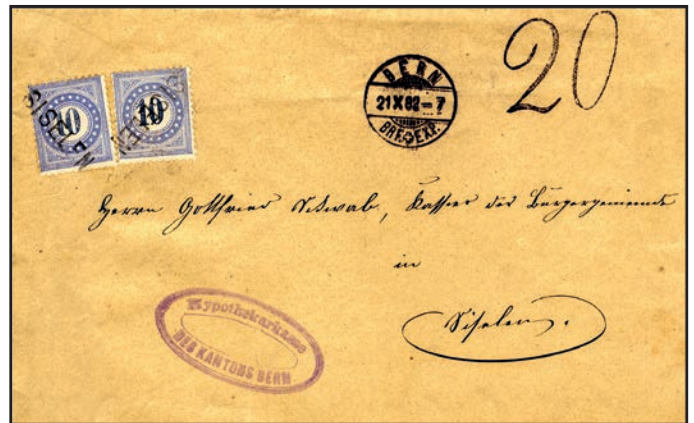 20
10
10
SISELEN
SISELEN
BERN
21 X 82 – 7
BRF. EXP.
Herrn Gottfried Schwab, Kassier der Burgergemeinde
in
Siselen.
Hypothekarkasse
DES KANTONS BERN